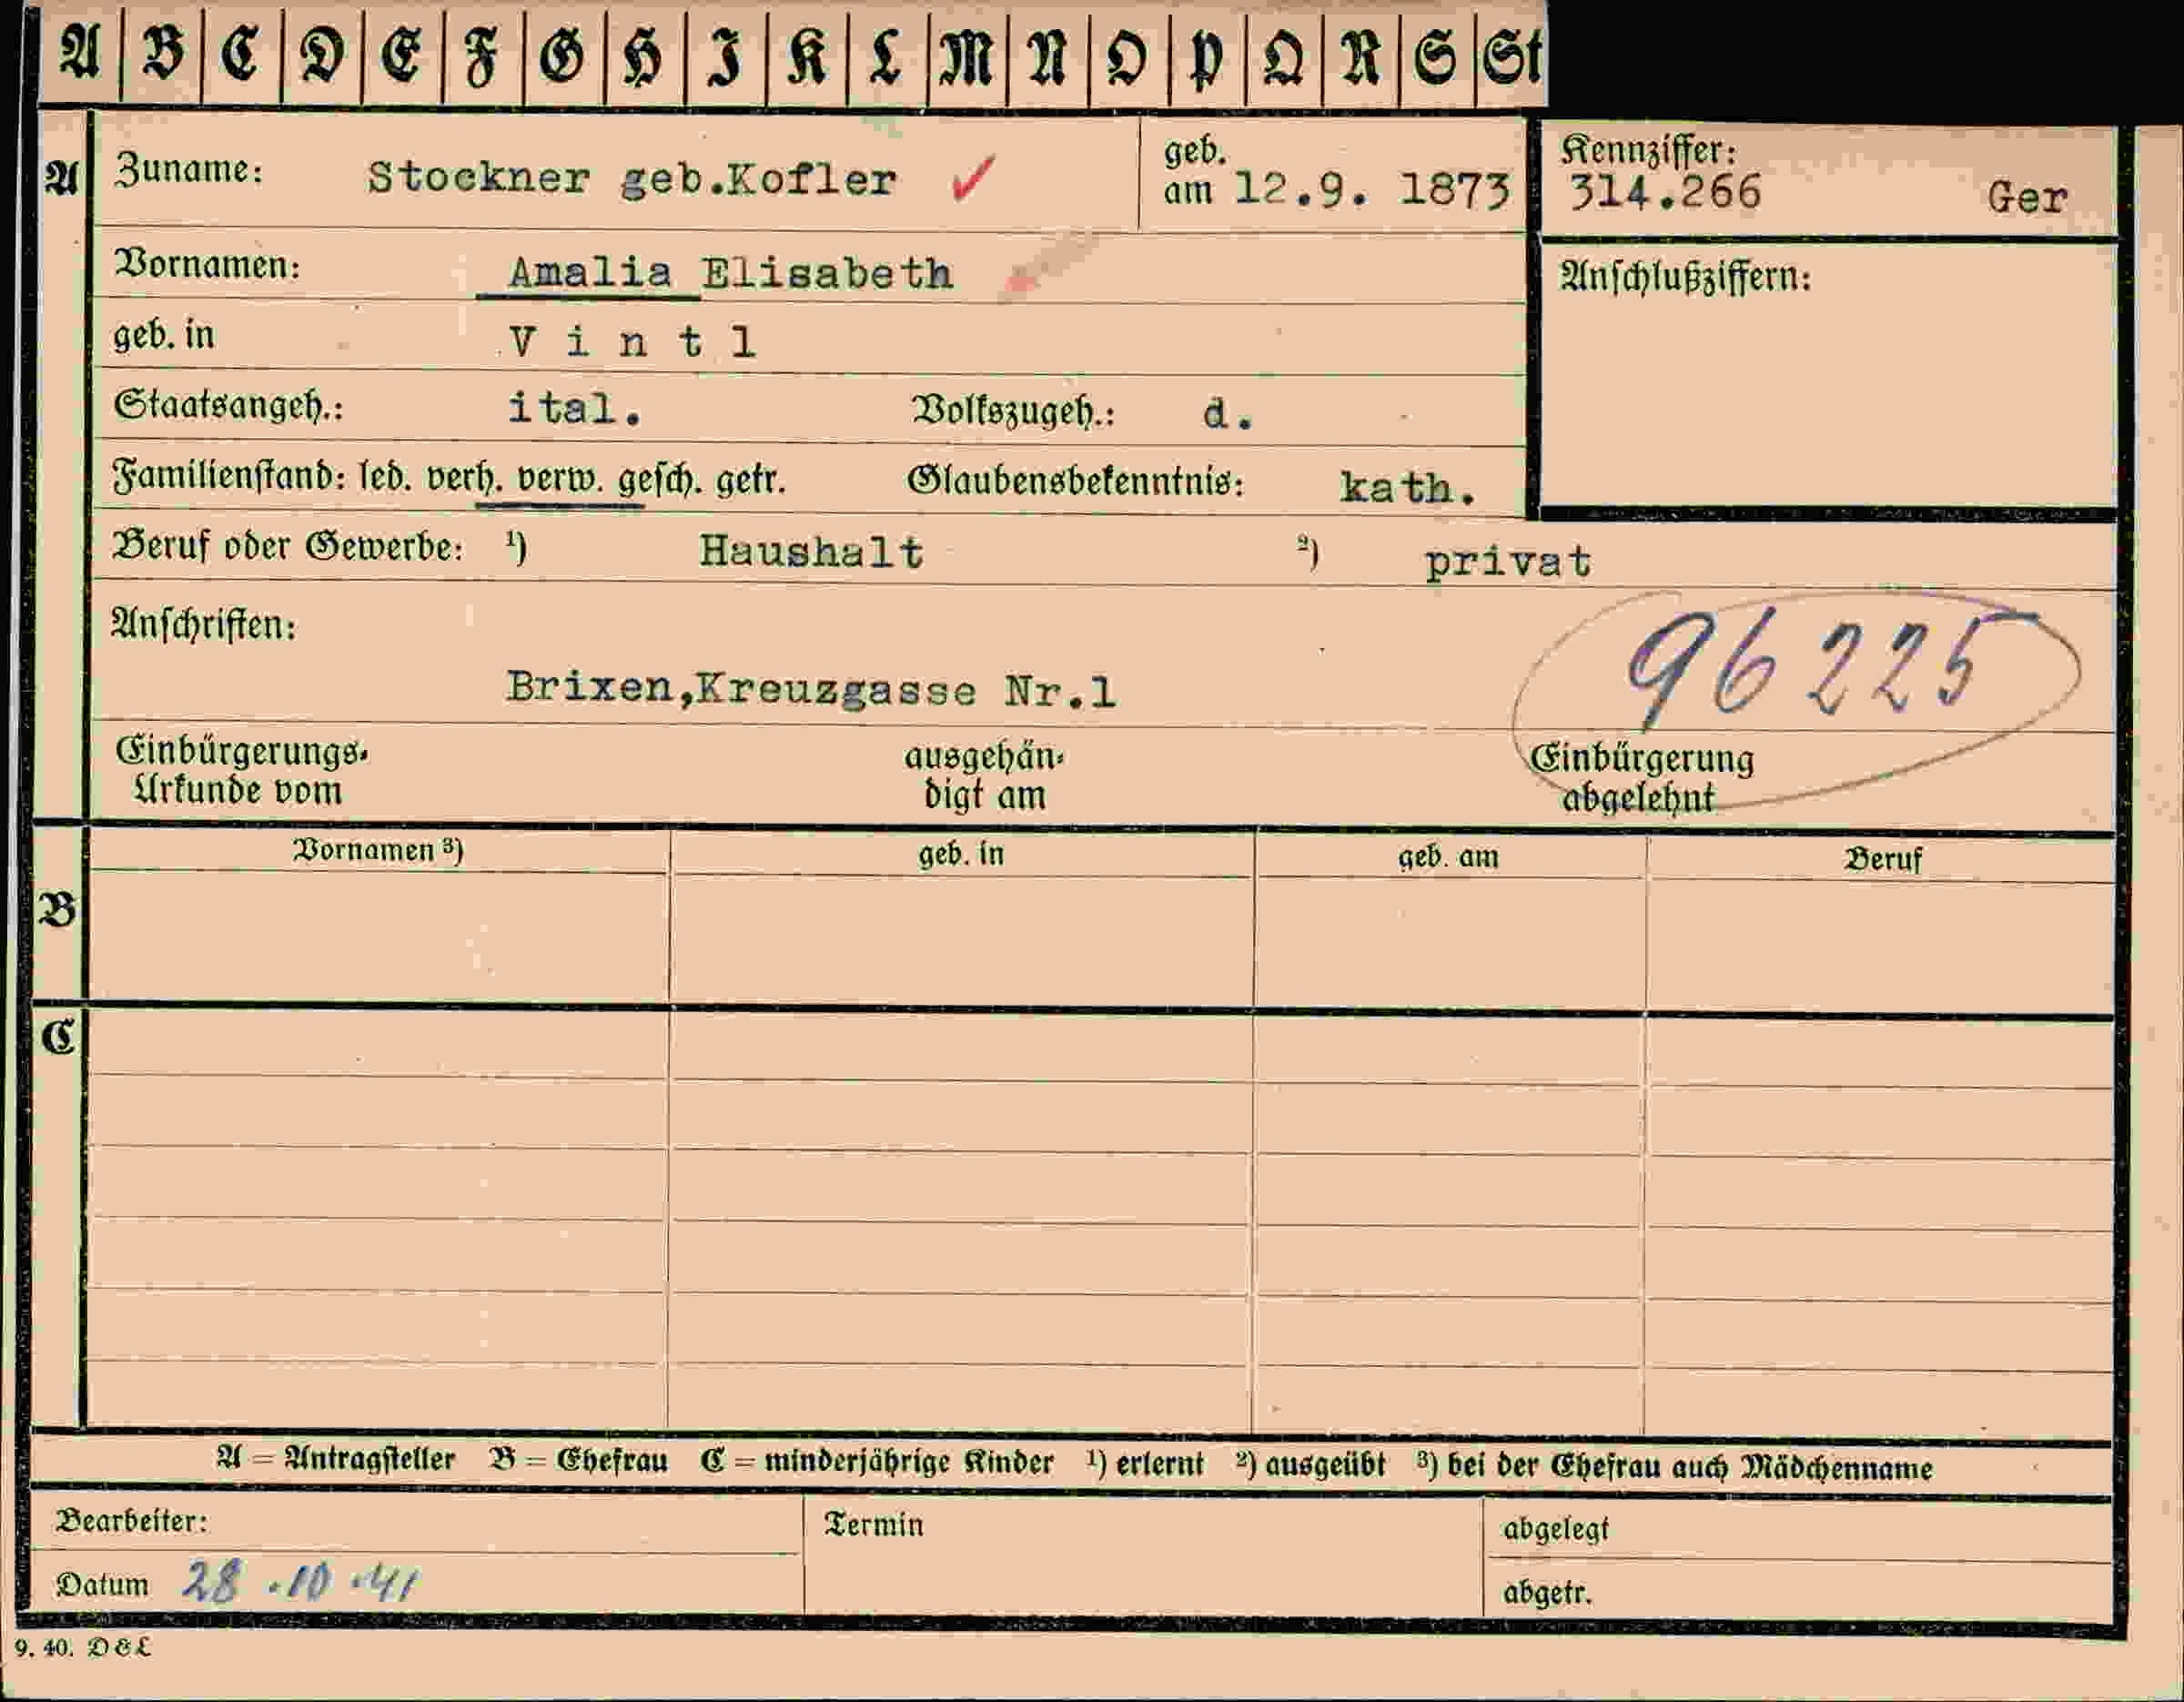 A B C D E F G H I K L M N O P Q R S St
A
Zuname: Stockner geb.Kofler ✓
geb. am 12.9. 1873
Kennziffer:
314.266 Ger
Vornamen: Amalia Elisabeth
Anschlußziffern:
geb. in V i n t l
Staatsangeh.: ital. Volkszugeh.: d.
Familienstand: led. verh. verw. gesch. getr. Glaubensbekenntnis: kath.
Beruf oder Gewerbe: ¹) Haushalt ²) privat
Anschriften:
96225
Brixen,Kreuzgasse Nr.1
Einbürgerungs-
Urkunde vom
ausgehän-
digt am
Einbürgerung
abgelehnt
B
Vornamen ³) geb. in geb. am Beruf
C
A = Antragsteller B = Ehefrau C = minderjährige Kinder ¹) erlernt ²) ausgeübt ³) bei der Ehefrau auch Mädchenname
Bearbeiter: Termin abgelegt
Datum 28.10.41 abgetr.
9. 40. D&L